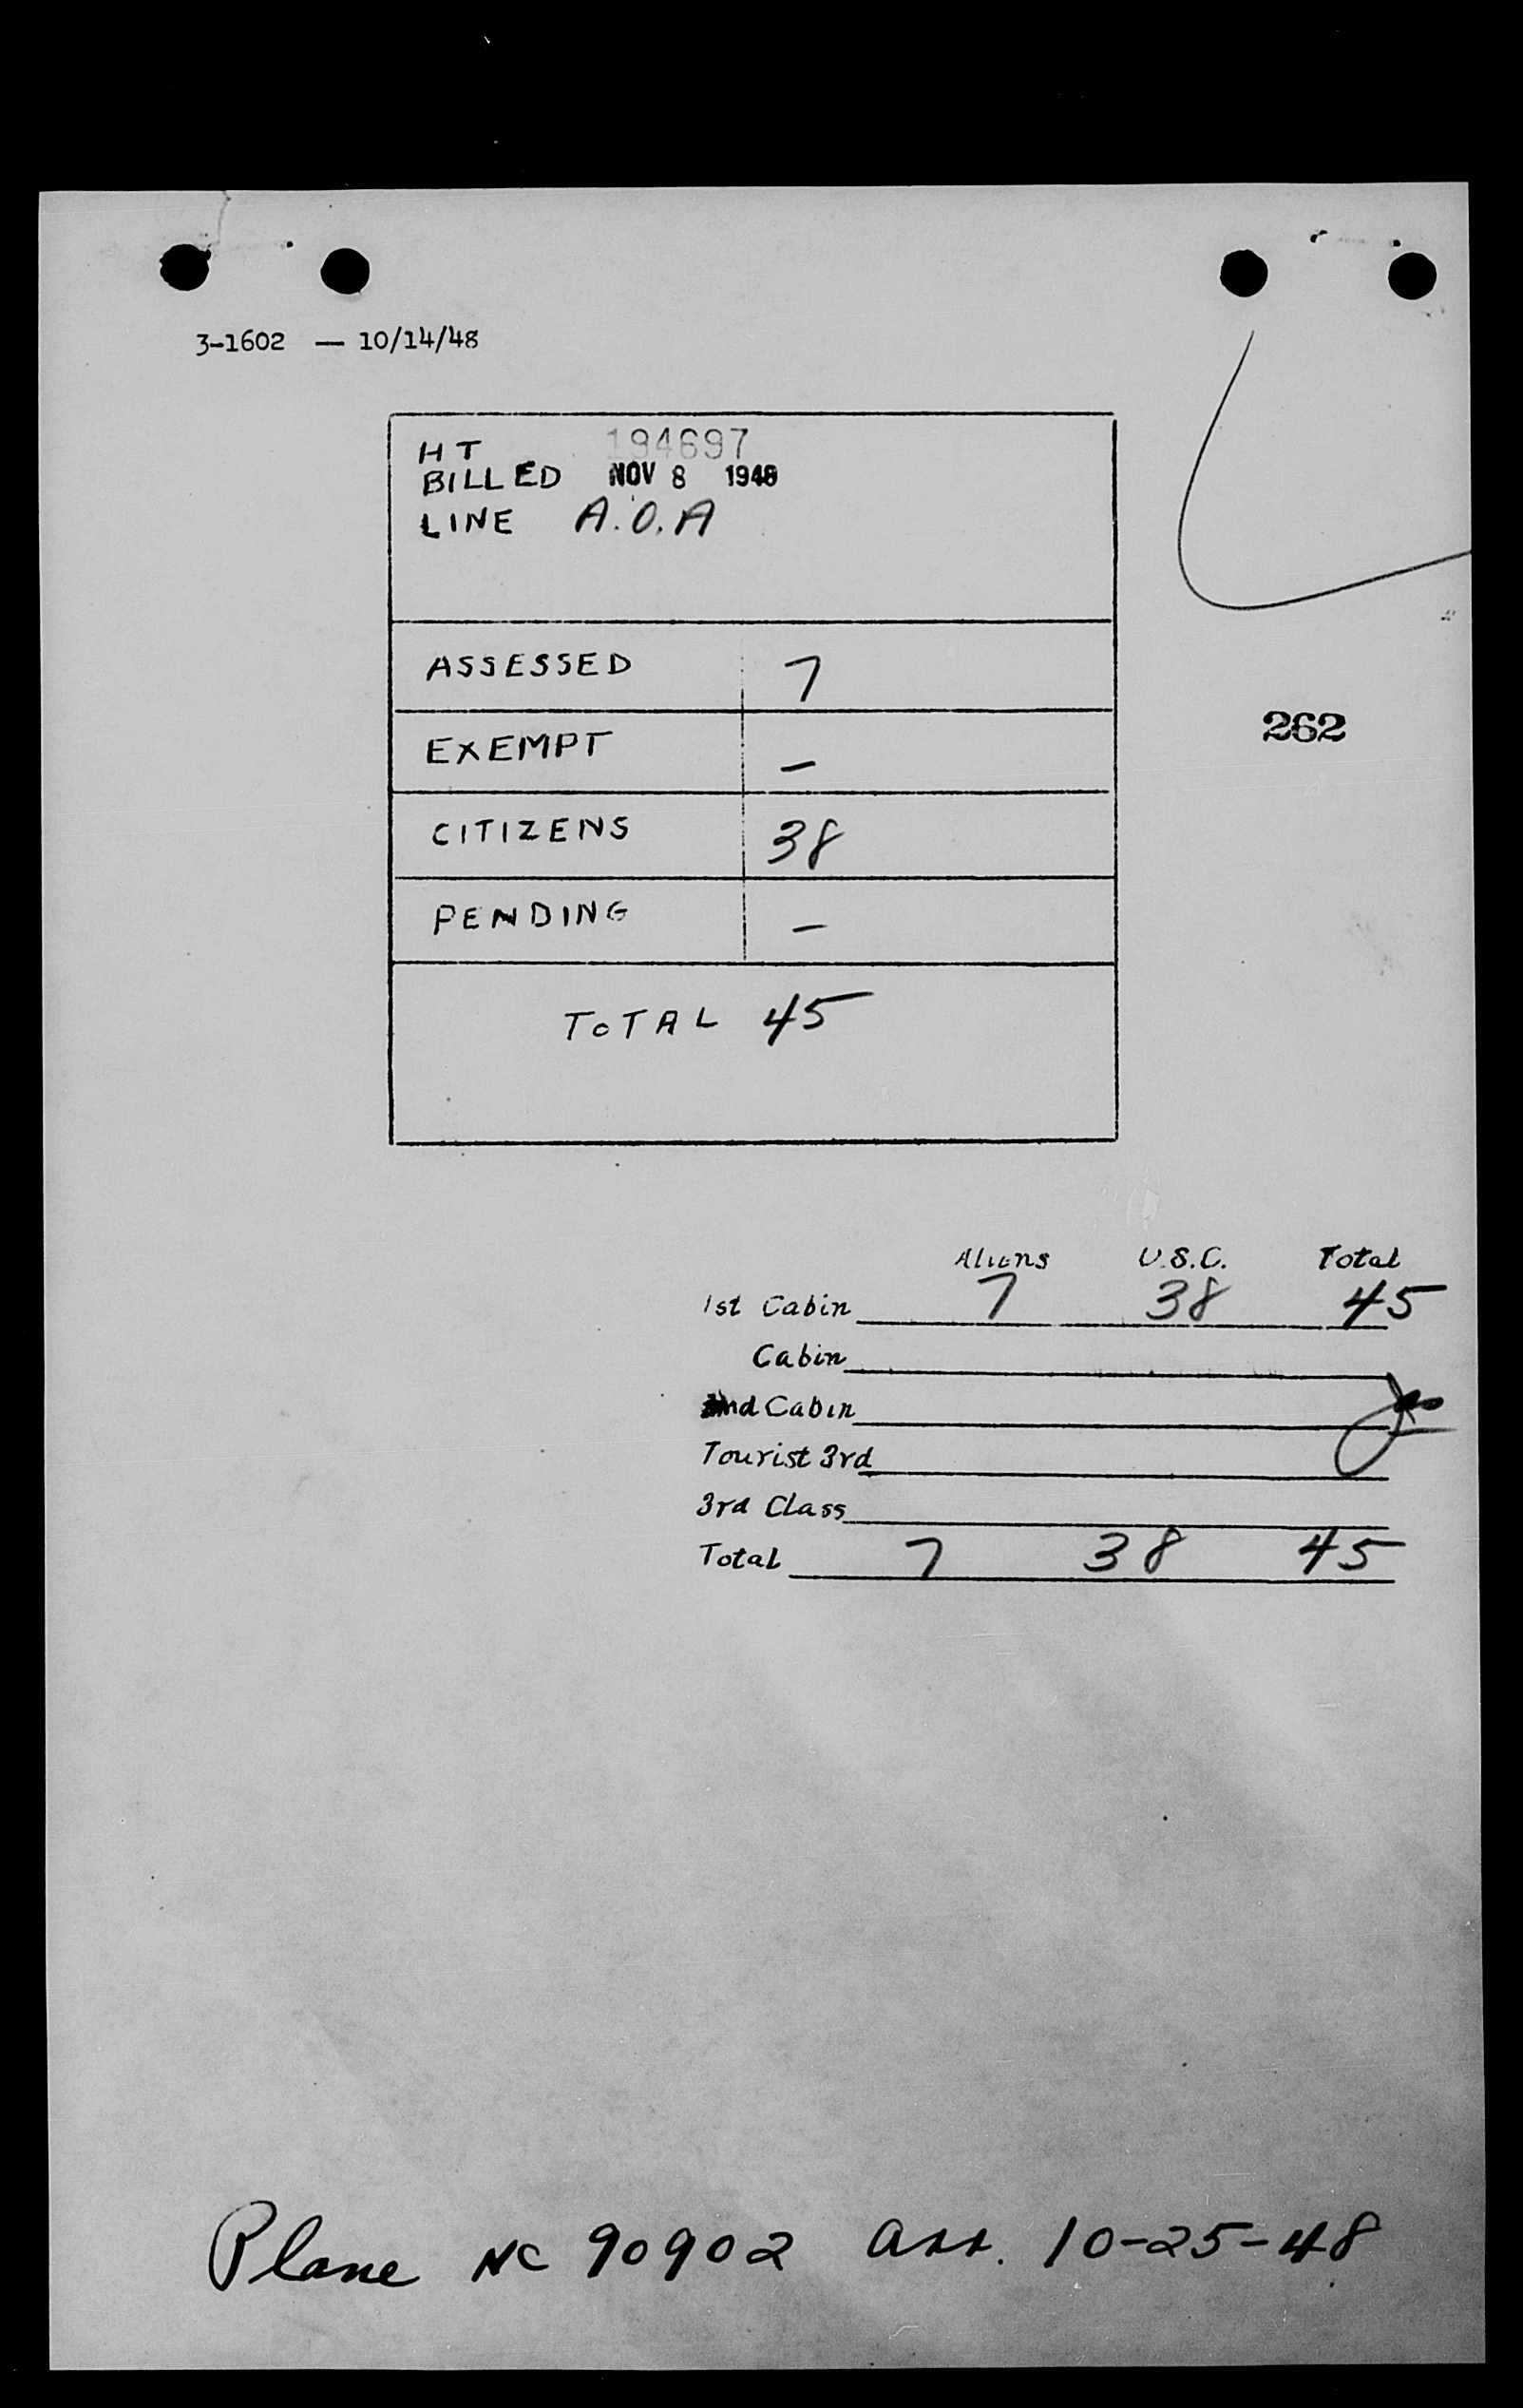 3-1602 — 10/14/48
HT 194697
BILLED NOV 8 1948
LINE A.O.A
ASSESSED 7
EXEMPT –
262
CITIZENS 38
PENDING –
TOTAL 45
Aliens U.S.C. Total
1st Cabin 7 38 45
Cabin
2nd Cabin
Tourist 3rd
3rd Class
Total 7 38 45
Plane NC 90902 arr. 10-25-48